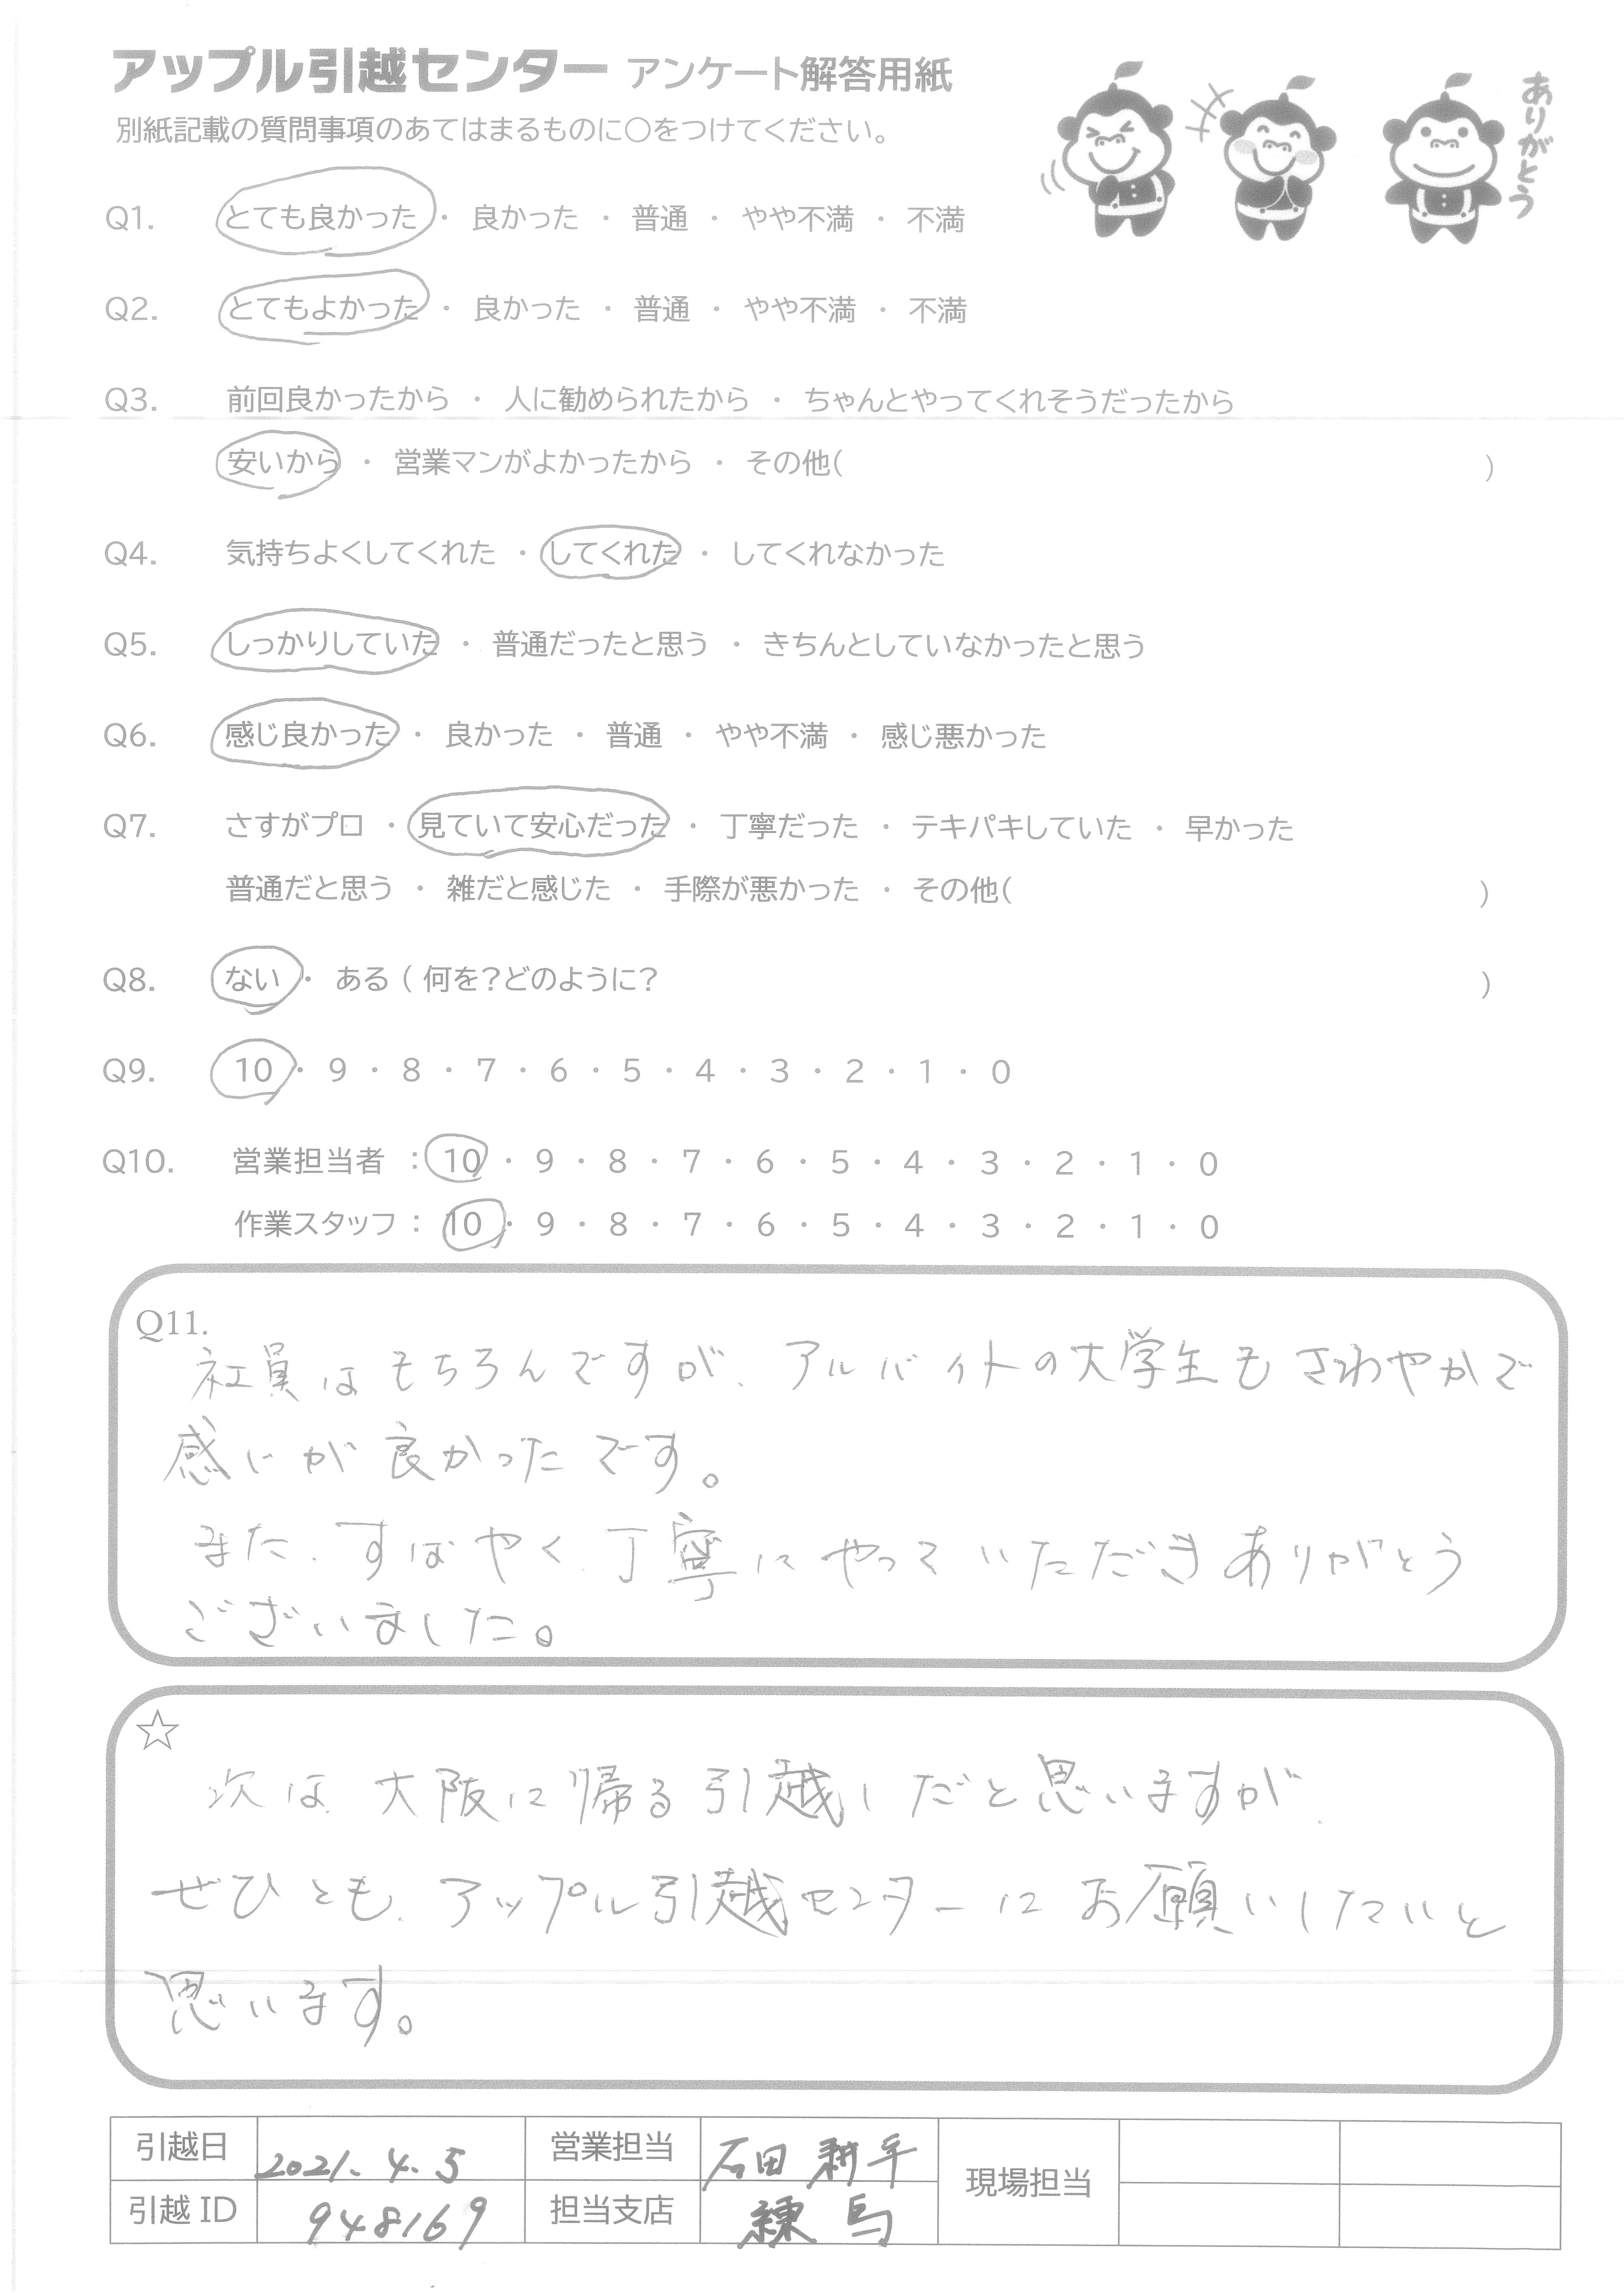 アップル引越センター アンケート解答用紙
ありがとう
別紙記載の質問事項のあてはまるものに○をつけてください。
Q1. とても良かった ・ 良かった ・ 普通 ・ やや不満 ・ 不満
Q2. とてもよかった ・ 良かった ・ 普通 ・ やや不満 ・ 不満
Q3. 前回良かったから ・ 人に勧められたから ・ ちゃんとやってくれそうだったから
安いから ・ 営業マンがよかったから ・ その他( )
Q4. 気持ちよくしてくれた ・ してくれた ・ してくれなかった
Q5. しっかりしていた ・ 普通だったと思う ・ きちんとしていなかったと思う
Q6. 感じ良かった ・ 良かった ・ 普通 ・ やや不満 ・ 感じ悪かった
Q7. さすがプロ ・ 見ていて安心だった ・ 丁寧だった ・ テキパキしていた ・ 早かった
普通だと思う ・ 雑だと感じた ・ 手際が悪かった ・ その他( )
Q8. ない ・ ある ( 何を?どのように? )
Q9. 10 ・ 9 ・ 8 ・ 7 ・ 6 ・ 5 ・ 4 ・ 3 ・ 2 ・ 1 ・ 0
Q10. 営業担当者 : 10 ・ 9 ・ 8 ・ 7 ・ 6 ・ 5 ・ 4 ・ 3 ・ 2 ・ 1 ・ 0
作業スタッフ : 10 ・ 9 ・ 8 ・ 7 ・ 6 ・ 5 ・ 4 ・ 3 ・ 2 ・ 1 ・ 0
Q11.
社員はもちろんですが、アルバイトの大学生もさわやかで
感じが良かったです。
また、すばやく丁寧にやっていただきありがとう
ございました。
☆
次は、大阪に帰る引越しだと思いますが、
ぜひとも、アップル引越センターにお願いしたいと
思います。
引越日 2021.4.5 営業担当 石田 耕平 現場担当
引越ID 948169 担当支店 練馬